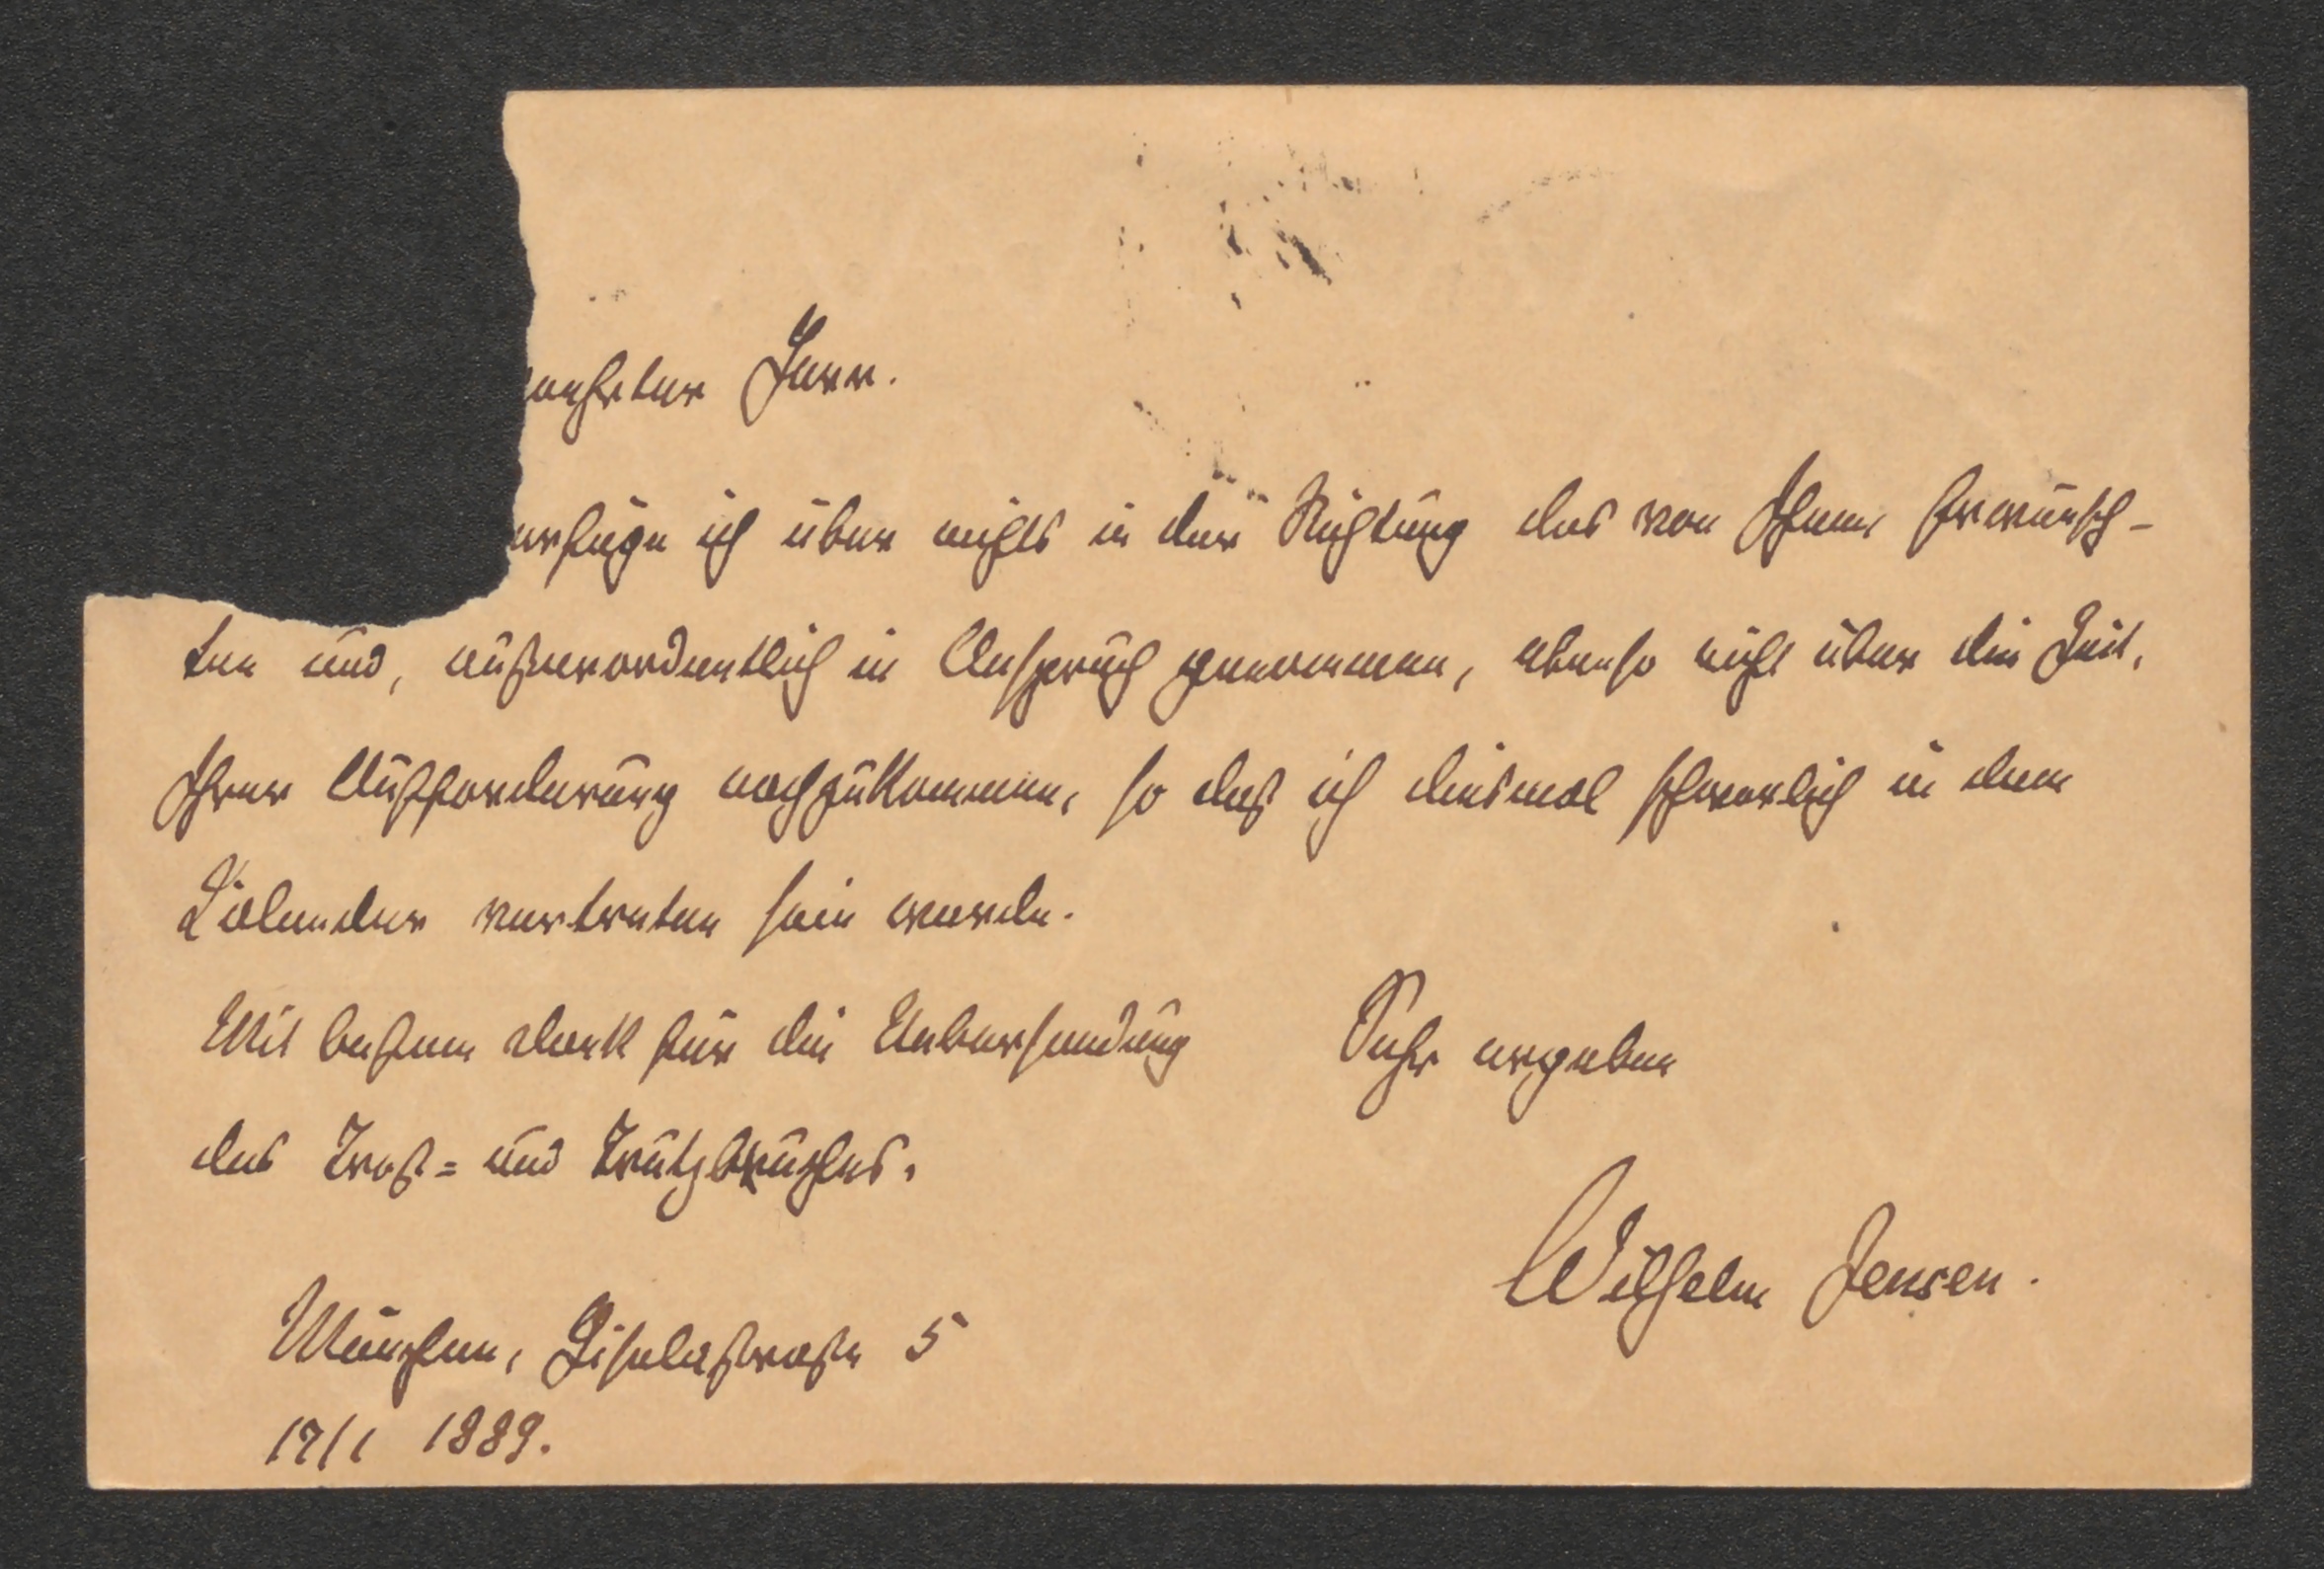 eehrter Herr.
erfüge ich über nichts in der Richtung des von Ihnen Erwünsch-
ten und, außerordentlich in Anspruch genommen, ebenso nicht über die Zeit,
Ihrer Aufforderung nachzukommen, so daß ich diesmal schwerlich in dem
Kalender vertreten sein werde.
Mit bestem Dank für die Uebersendung
des Trost= und Trutzbruches.
Sehr ergeben
Wilhelm Jensen.
München, Giselastraße 5
17/1 1889.